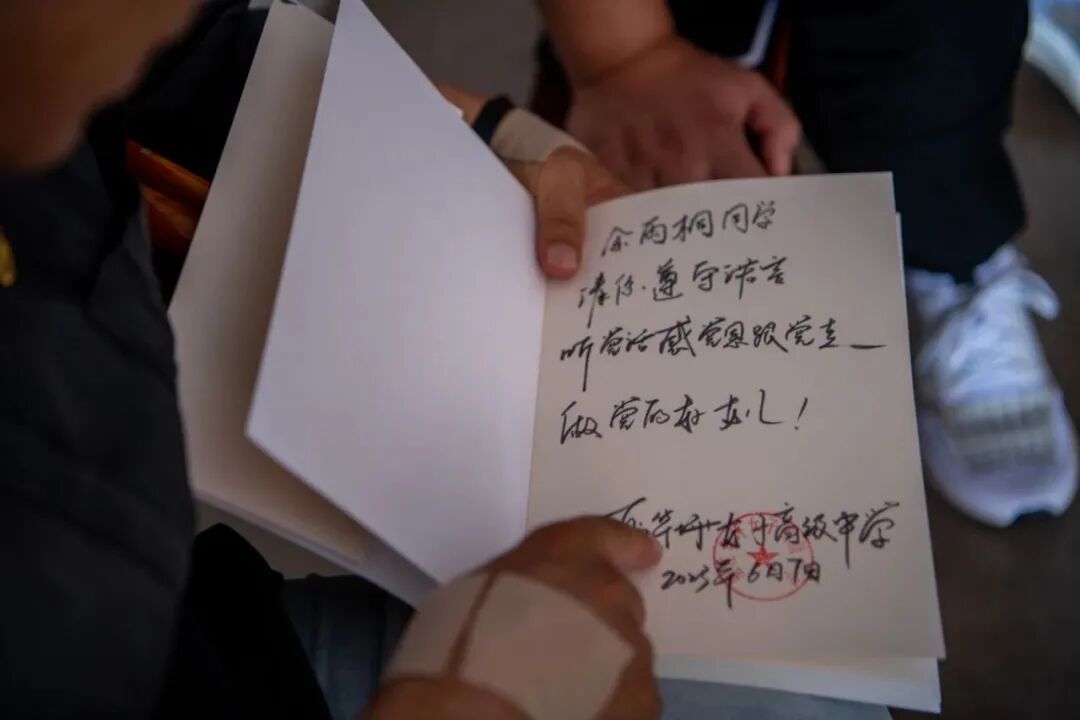 余雨桐同学
请你遵守诺言
听党话感党恩跟党走
做党的好女儿！
华坪女子高级中学
2023年6月7日